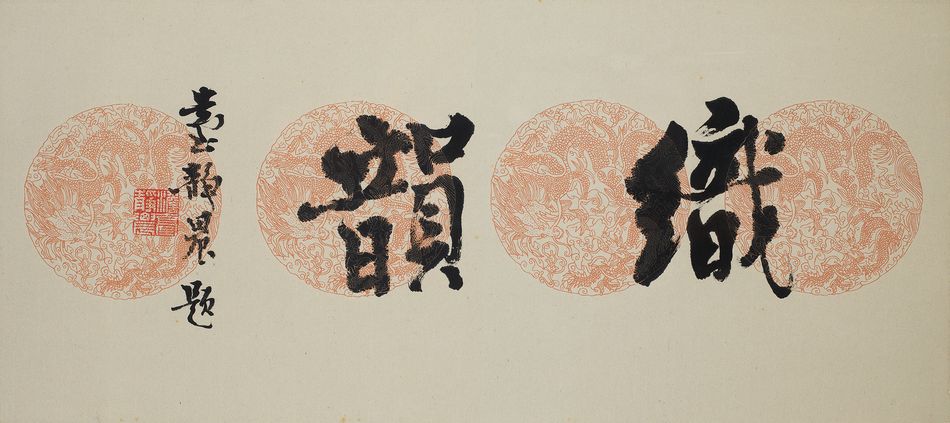 織韻
臺靜農題